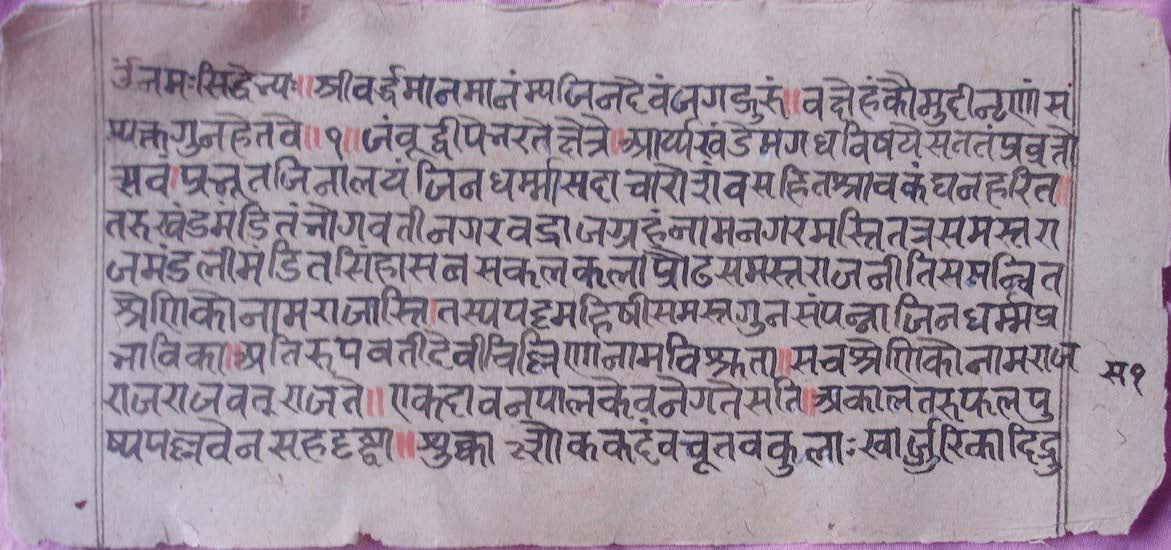 ॐनमःसिद्धेभ्यः॥श्रीवर्द्धमानमानंम्यजिनदेवंजगद्गुरुं॥वक्षेहंकौमुदीन्नृणांसं
म्यक्तगुनहेतवे॥१॥जंवूद्वीपेभरतेक्षेत्रे॥आर्य्यखंडेमगधविषयेसततंप्रवृत्तो
त्सवं।प्रभूतजिनालयंजिनधर्म्मासदाचारोत्सवसहितश्रावकंघनहरित॥
तरुखंडमंडितंभोगवतीनगरवद्राजग्रहंनामनगरमस्तितत्रसमस्तरा
जमंडलीमंडितसिंहासनसकलकलाप्रौढसमस्तराजनीतिसमन्वित
श्रेणिकोनामराजास्ति।तस्यपट्टमहिषीसमस्तगुनसंपन्नाजिनधर्म्मप्र
भाविका॥अतिरूपवतीदेवीचिल्लिणानामविश्रुता॥सवश्रेणिकोनामराज
राजराजवत्राजते॥एकदावनपालकेवनेगतेसति॥अकालतरुफलपु
ष्पपल्लवेनसहदृष्ट्वा॥शुष्का शोककदंवचूतवकुलाःखार्जुरिकादिद्रु
स१